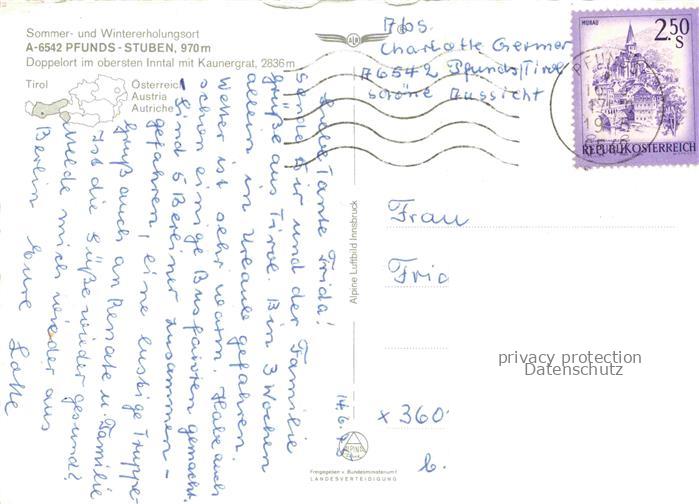 Sommer- und Wintererholungsort
A-6542 PFUNDS - STUBEN, 970 m
Doppelort im obersten Inntal mit Kaunergrat, 2836 m
Tirol
Österreich
Austria
Autriche
ALI
Abs.
Charlotte Germer
A6542 Pfunds/Tirol
schöne Aussicht
MURAU
2.50
S
REPUBLIK ÖSTERREICH
Liebe Tante Frida!
Sende Dir und der Familie
Grüße aus Tirol. Bin 3 Wochen
allein in Urlaub gefahren.
Wetter ist sehr warm. Habe auch
schon einige Busfahrten gemacht.
Sind 5 Berliner zusammen-
gefahren, eine lustige Truppe.
Gruß auch an Renate u. Familie
Ist die Süße wieder gesund?
Melde mich wieder aus
Berlin Eure Lotte
14.6.
Alpine Luftbild Innsbruck
Frau
Frid
x 360
b.
privacy protection
Datenschutz
ALPINE
Freigegeben v. Bundesministerium f.
LANDESVERTEIDIGUNG